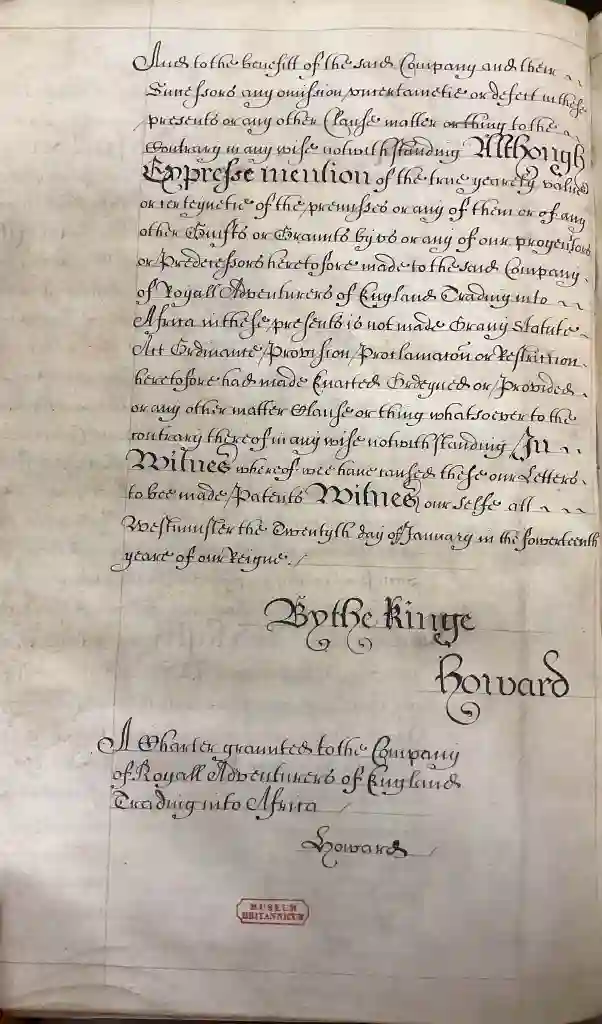 And to the benefitt of the said Company and their
Successors any omission incertaintie or defect in these
presents or any other Clause matter or thing to the
Contrary in any wise notwithstanding Although
Expresse mention of the true yearely value
or certeynetie of the premisses or any of them or of any
other Guifts or Graunts by us or any of our progenitors
or Predecessors heretofore made to the said Company
of Royall Adventurers of England Trading into
Africa in these presents is not made Or any Statute
Act Ordinance Provision Proclamacon or Restriction
heretofore had made Enacted Ordeyned or Provided
or any other matter Clause or thing whatsoever to the
contrary thereof in any wise notwithstanding In
Witnes whereof wee have caused these our Letters
to bee made Patents Witnes our selfe att
Westminster the Twentyth day of January in the fowerteenth
yeare of our Reigne./
By the Kinge
Howard
A Charter graunted to the Company
of Royall Adventurers of England
Trading into Africa
Howard
MUSEUM
BRITANNICUM